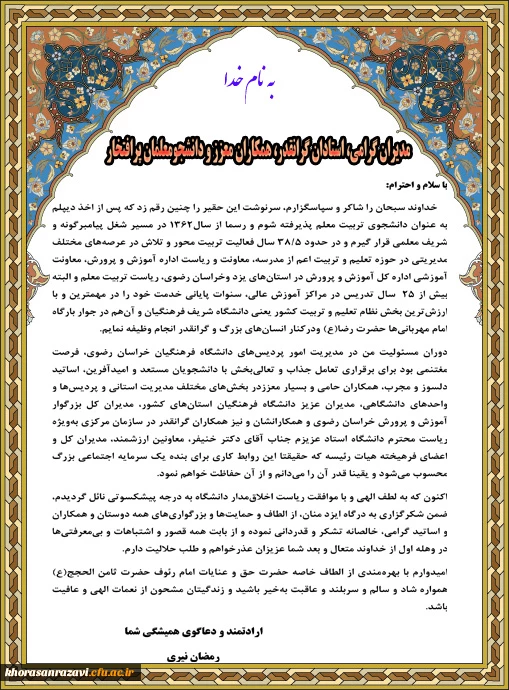 به نام خدا
مدیران گرامی، استادان گرانقدر، همکاران معزز و دانشجو معلمان پر افتخار
با سلام و احترام:
خداوند سبحان را شاکر و سپاسگزارم، سرنوشت این حقیر را چنین رقم زد که پس از اخذ دیپلم
به عنوان دانشجوی تربیت معلم پذیرفته شوم و رسما از سال۱۳۶۲ در مسیر شغل پیامبرگونه و
شریف معلمی قرار گیرم و در حدود ۳۸/۵ سال فعالیت تربیت محور و تلاش در عرصه‌های مختلف
مدیریتی در حوزه تعلیم و تربیت اعم از مدرسه، معاونت و ریاست اداره آموزش و پرورش، معاونت
آموزشی اداره کل آموزش و پرورش در استان‌های یزد وخراسان رضوی، ریاست تربیت معلم و البته
بیش از ۲۵ سال تدریس در مراکز آموزش عالی، سنوات پایانی خدمت خود را در مهمترین و با
ارزش‌ترین بخش نظام تعلیم و تربیت کشور یعنی دانشگاه شریف فرهنگیان و آن‌هم در جوار بارگاه
امام مهربانی‌ها حضرت رضا(ع) ودرکنار انسان‌های بزرگ و گرانقدر انجام وظیفه نمایم.
دوران مسئولیت من در مدیریت امور پردیس‌های دانشگاه فرهنگیان خراسان رضوی، فرصت
مغتنمی بود برای برقراری تعامل جذاب و تعالی‌بخش با دانشجویان مستعد و امیدآفرین، اساتید
دلسوز و مجرب، همکاران حامی و بسیار معزز‌در بخش‌های مختلف مدیریت استانی و پردیس‌ها و
واحدهای دانشگاهی، مدیران عزیز دانشگاه فرهنگیان استان‌های کشور، مدیران کل بزرگوار
آموزش و پرورش خراسان رضوی و همکارانشان و نیز همکاران گرانقدر در سازمان مرکزی به‌ویژه
ریاست محترم دانشگاه استاد عزیزم جناب آقای دکتر خنیفر، معاونین ارزشمند، مدیران کل و
اعضای فرهیخته هیات رئیسه که حقیقتا این روابط کاری برای بنده یک سرمایه اجتماعی بزرگ
محسوب می‌شود و یقینا قدر آن را می‌دانم و از آن حفاظت خواهم نمود.
اکنون که به لطف الهی و با موافقت ریاست اخلاق‌مدار دانشگاه به درجه پیشکسوتی نائل گردیدم،
ضمن شکرگزاری به درگاه ایزد منان، از الطاف و حمایت‌ها و بزرگواری‌های همه دوستان و همکاران
و اساتید گرامی، خالصانه تشکر و قدردانی نموده و از بابت همه قصور و اشتباهات و بی‌معرفتی‌ها
در وهله اول از خداوند متعال و بعد شما عزیزان عذرخواهم و طلب حلالیت دارم.
امیدوارم با بهره‌مندی از الطاف خاصه حضرت حق و عنایات امام رئوف حضرت ثامن الحجج(ع)
همواره شاد و سالم و سربلند و عاقبت به‌خیر باشید و زندگیتان مشحون از نعمات الهی و عافیت
باشد.
ارادتمند و دعاگوی همیشگی شما
رمضان نیری
khorasanrazavi.cfu.ac.ir